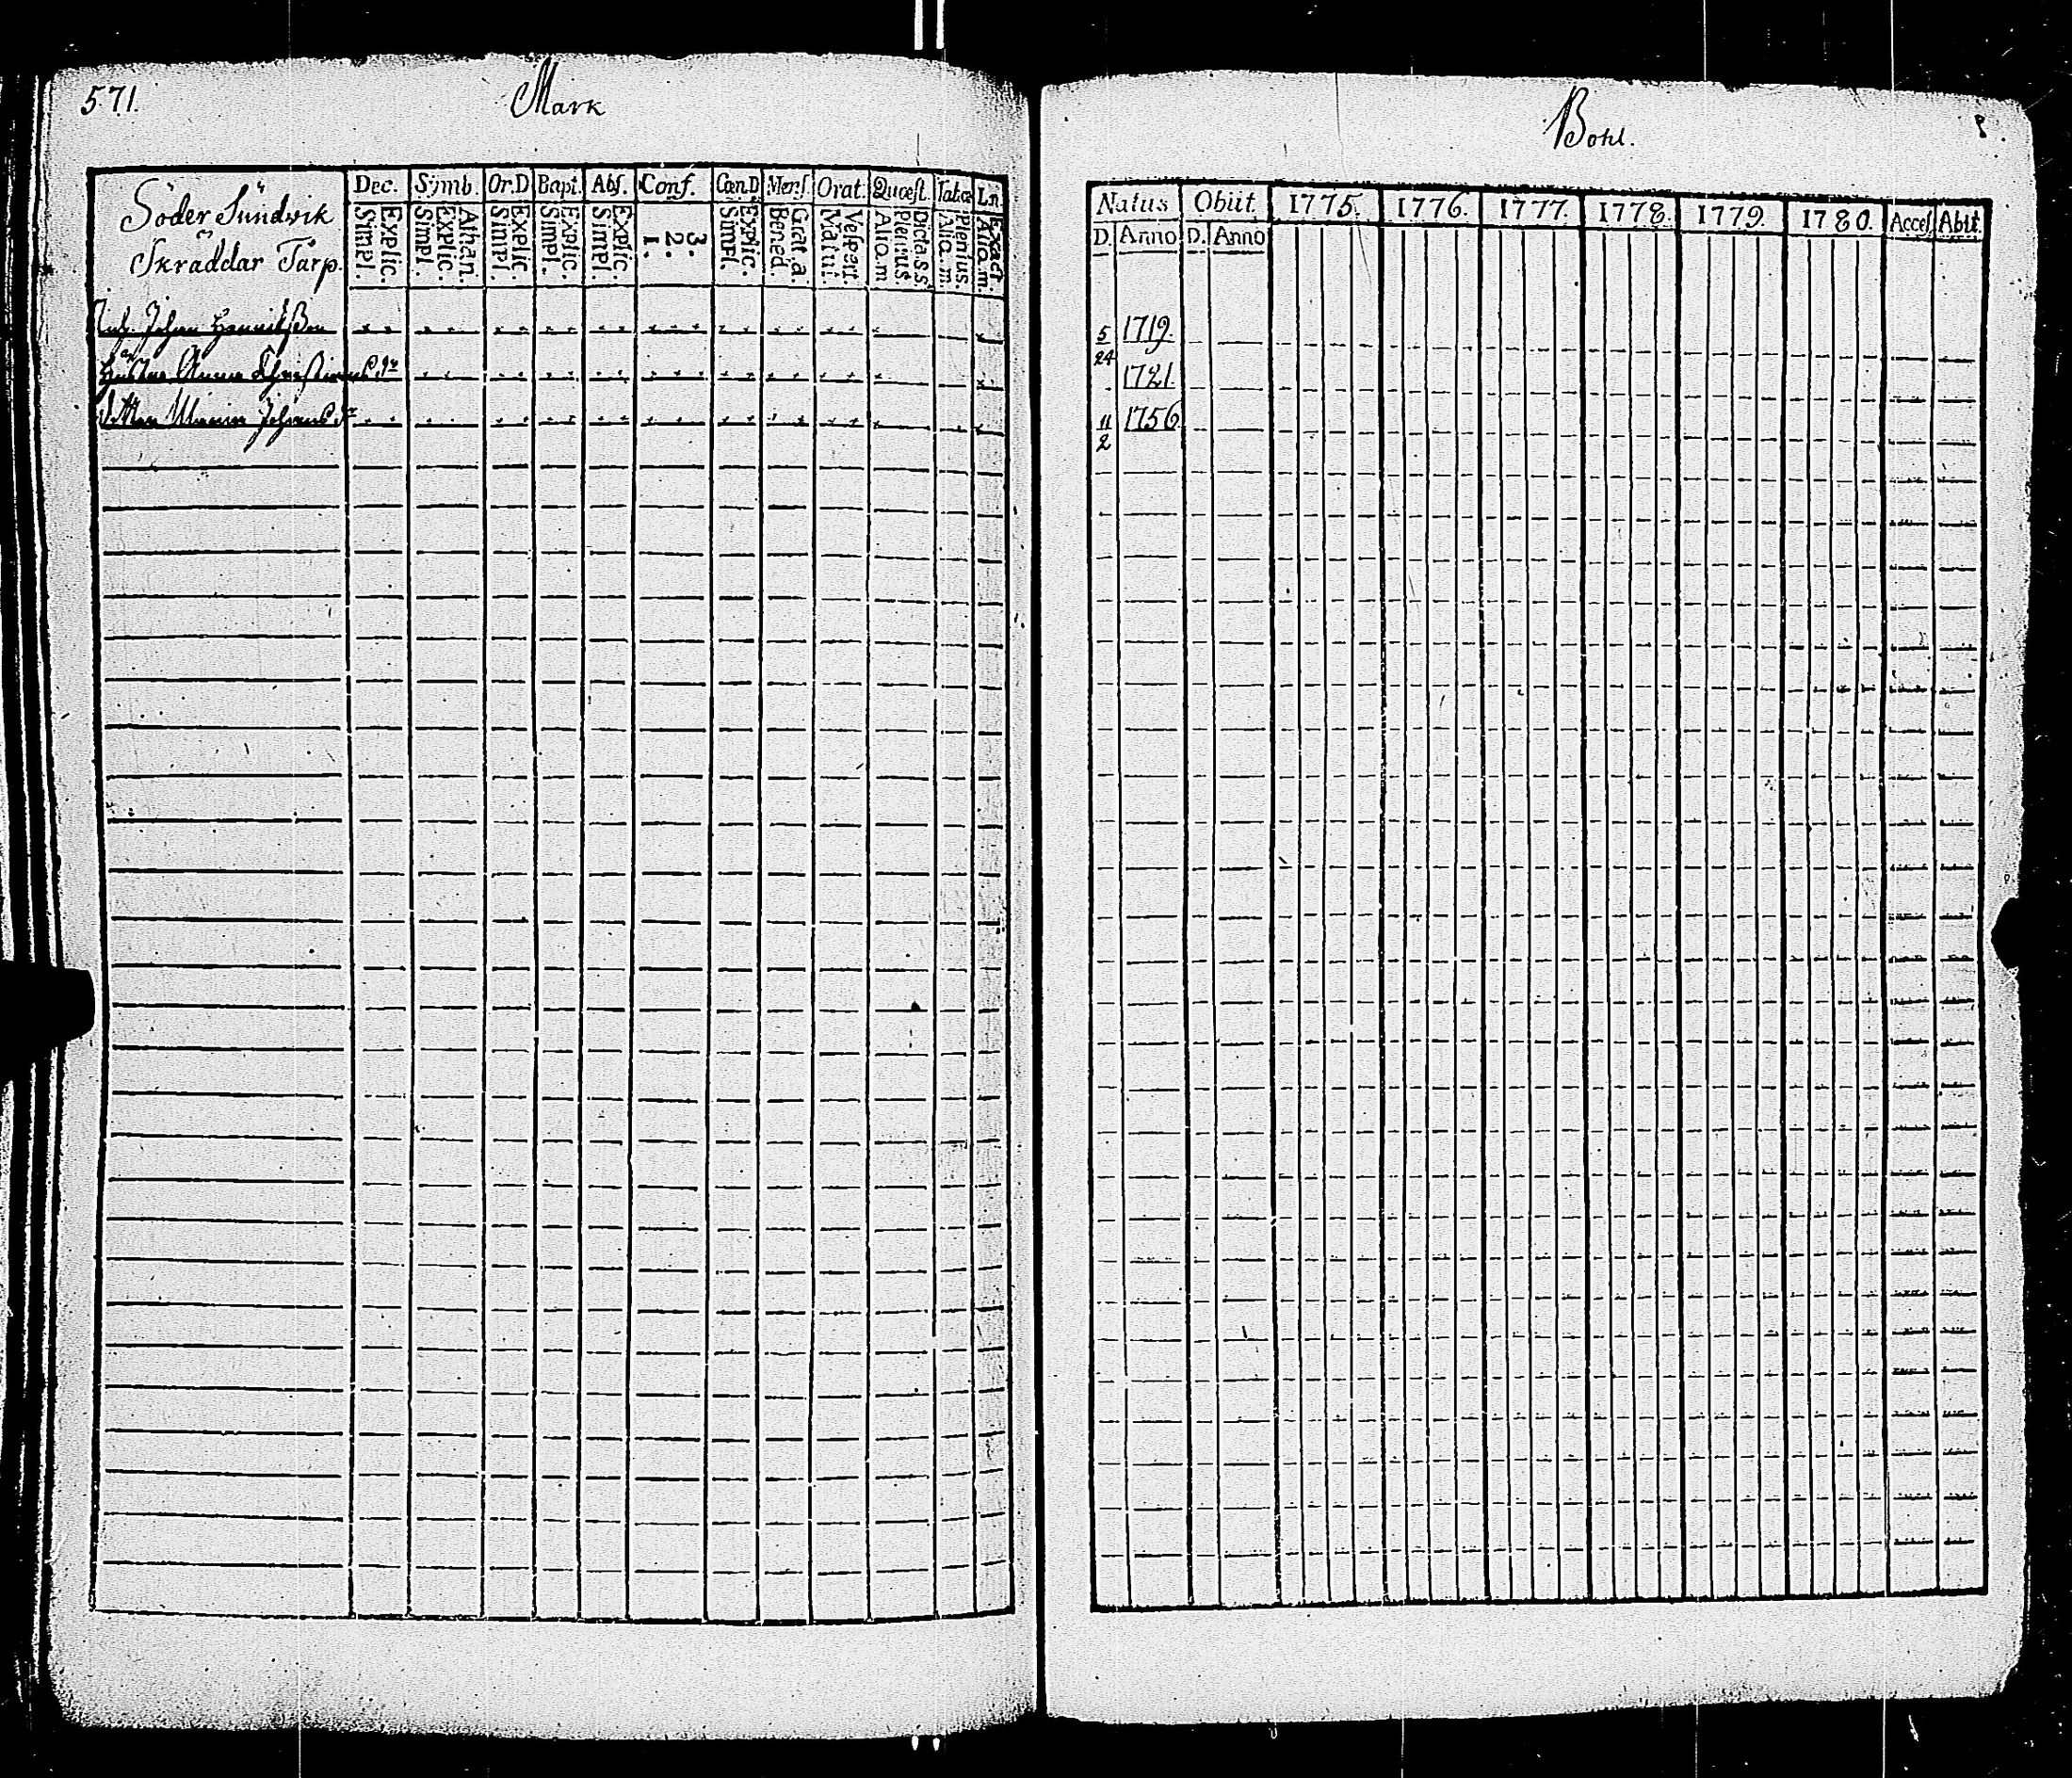 571.
Mark
Söder Sundvik
Skräddar Tårp.
Dec. Symb. Or.D Bapt. Abs. Conf. Cœn.D Mens. Orat. Quæst. Tabæ Ln.
Simpl. Explic. Simpl. Explic. Athan. Simpl. Explic. Simpl. Explic. Simpl. Explic. 1. 2. 3. Simpl. Explic. Bened. Grat. a. Matut. Vespert. Aliq. m. Plenius Dicta. s.s. Aliq. m. Plenius. Aliq. m. Exact.
Johan Henriksson
Hustru Anna Christina
Dotter Maria Johans Dr
Bohl.
Natus Obiit 1775. 1776. 1777. 1778. 1779. 1780. Acces. Abit.
D. Anno D. Anno
5/24 1719.
1721.
11/2 1756